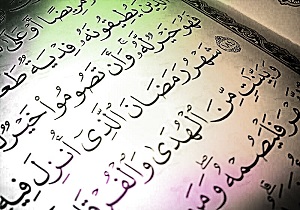 مَّرِيضًا أَوْ عَلَىٰ
ٱلَّذِينَ يُطِيقُونَهُۥ فِدْيَةٌ طَعَ
فَهُوَ خَيْرٌ لَّهُۥ وَأَن تَصُومُوا۟ خَيْرٌ ل
شَهْرُ رَمَضَانَ ٱلَّذِىٓ أُنزِلَ فِيهِ
وَبَيِّنَٰتٍ مِّنَ ٱلْهُدَىٰ وَٱلْفُرْقَا
فَلْيَصُمْهُ وَمَن